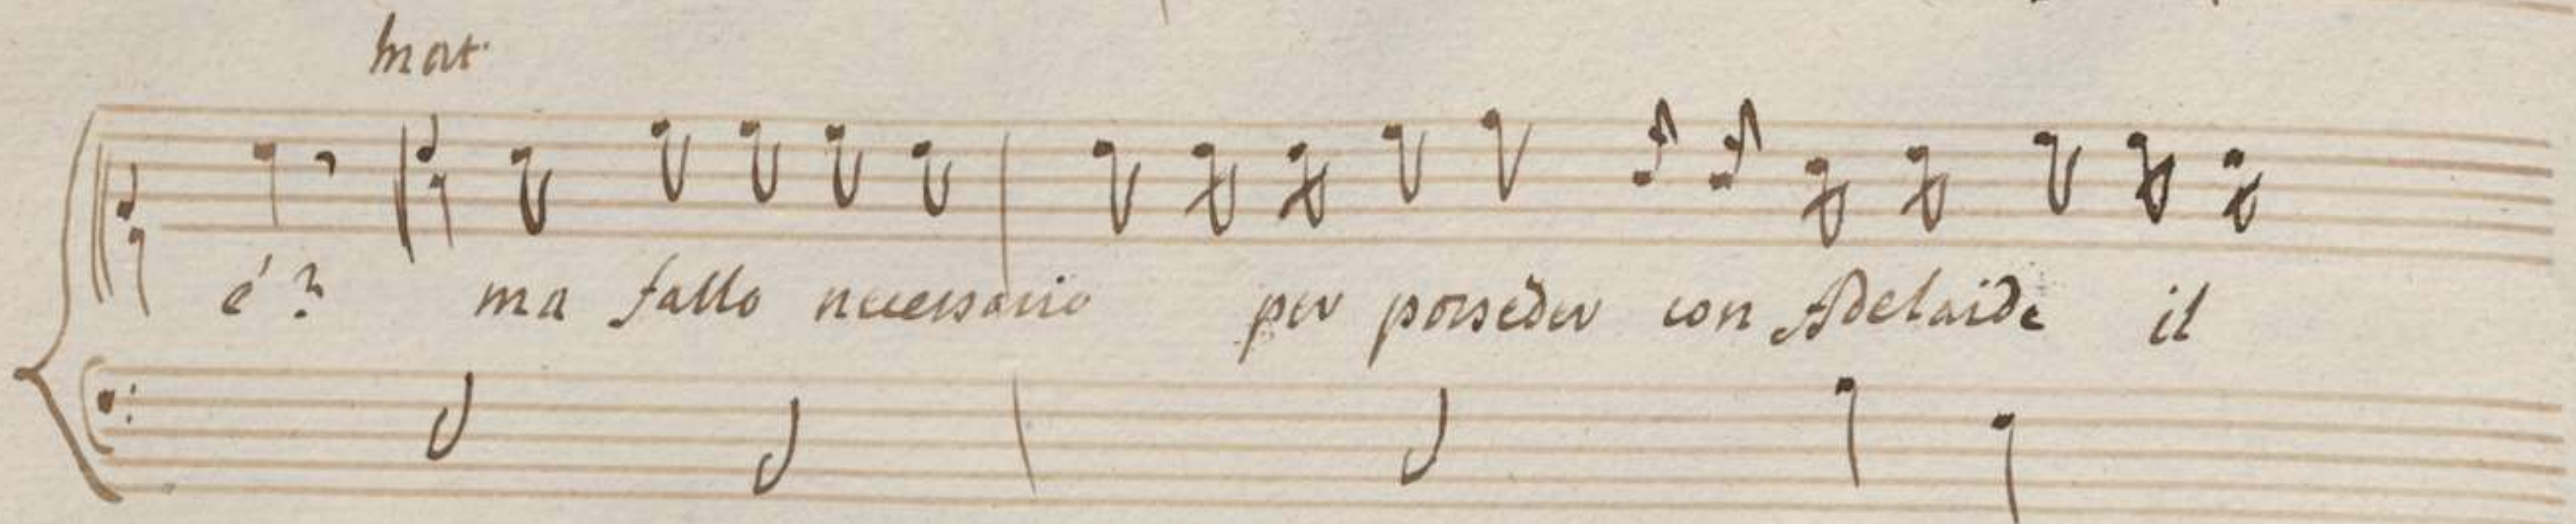 mat.
é? ma fallo necessario per posseder con Adelaide il